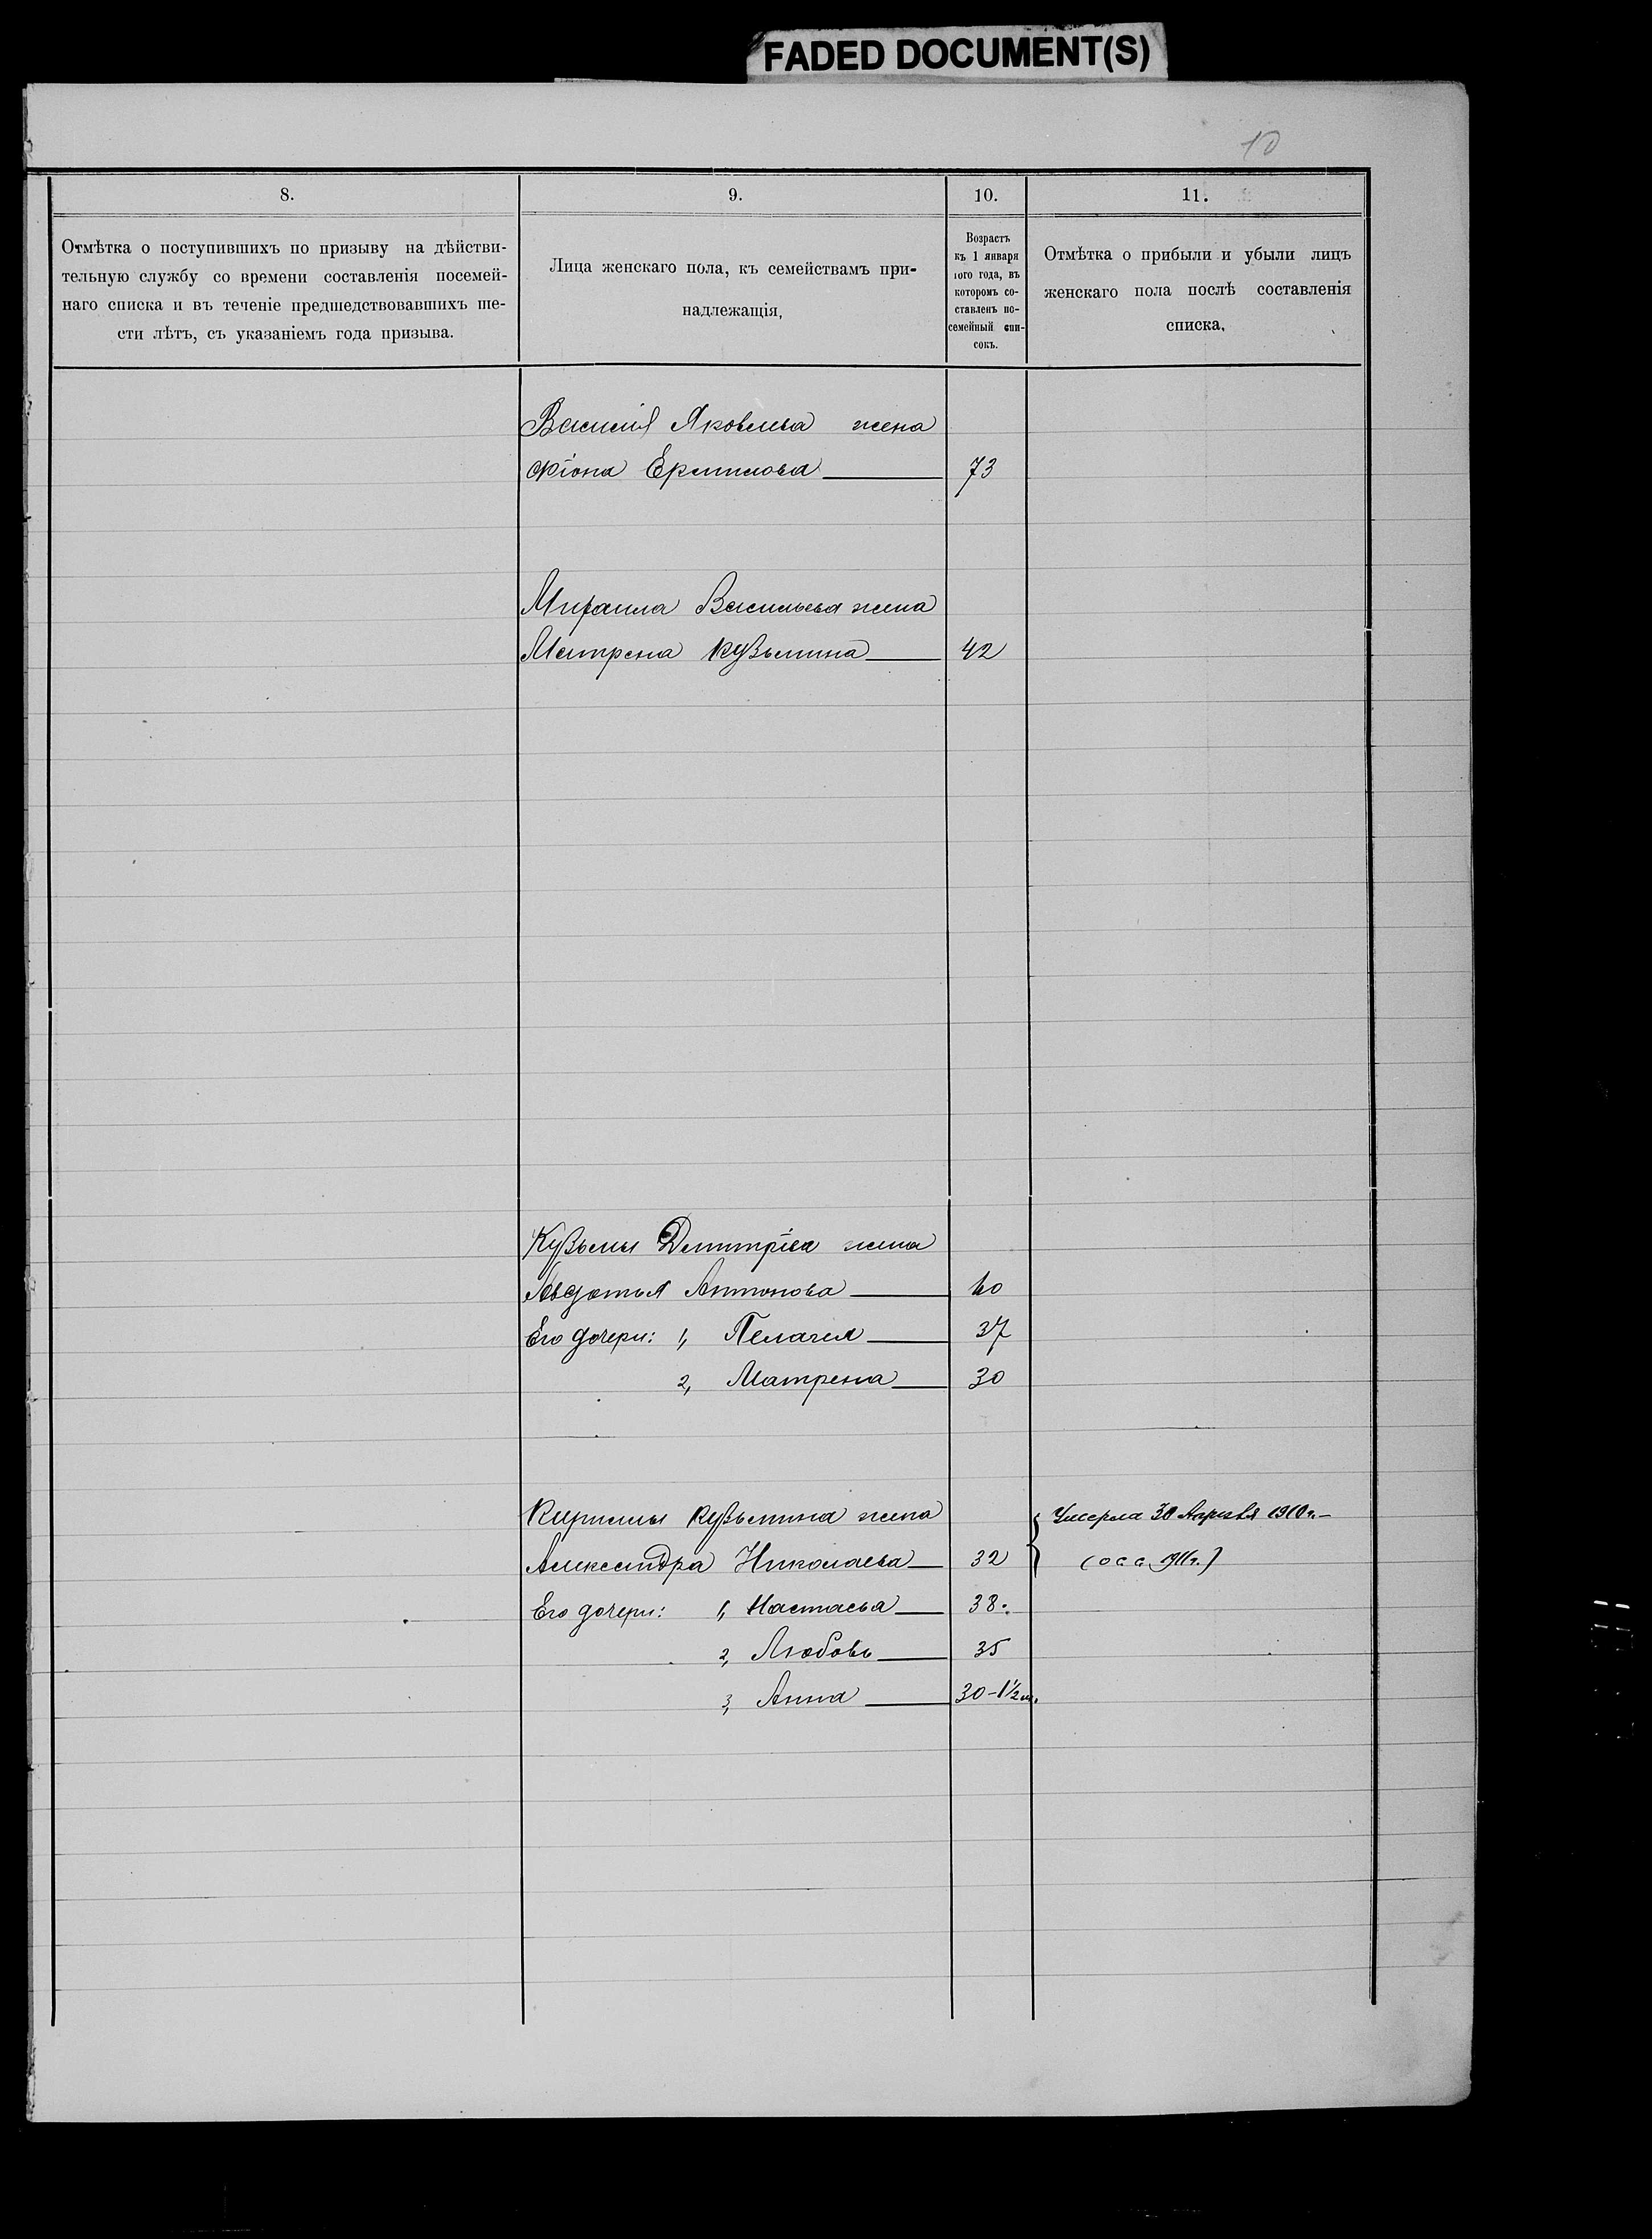 FADED DOCUMENT(S)
10
8.
9.
10.
11.
Отмѣтка о поступившихъ по призыву на дѣйстви-
тельную службу со времени составленія посемей-
наго списка и въ теченіе предшедствовавшихъ ше-
сти лѣтъ, съ указаніемъ года призыва.
Лица женскаго пола, къ семействамъ при-
надлежащія,
Возрастъ
къ 1 января
1ого года, въ
которомъ со-
ставленъ по-
семейный спи-
сокъ.
Отмѣтка о прибыли и убыли лицъ
женскаго пола послѣ составленія
списка.
Василія Яковлева жена
Фіона Ермилова 73
Михаила Васильева жена
Матрена Кузьмина 42
Кузьмы Дмитріева жена
Авдотья Антонова 60
Его дочери: 1, Пелагея 37
2, Матрена 30
Кирилы Кузьмина жена
Александра Николаева 32
Умерла 30 Апрѣля 1910 г.
1911 г.)
Его дочери: 1, Настасья 38.
2, Любовь 35
3, Анна 30-1½ м.